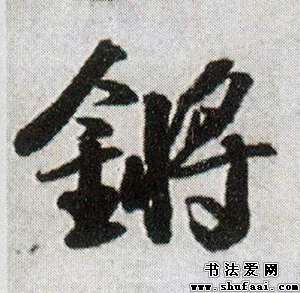 鏘
书法爱网
www.shufaai.com